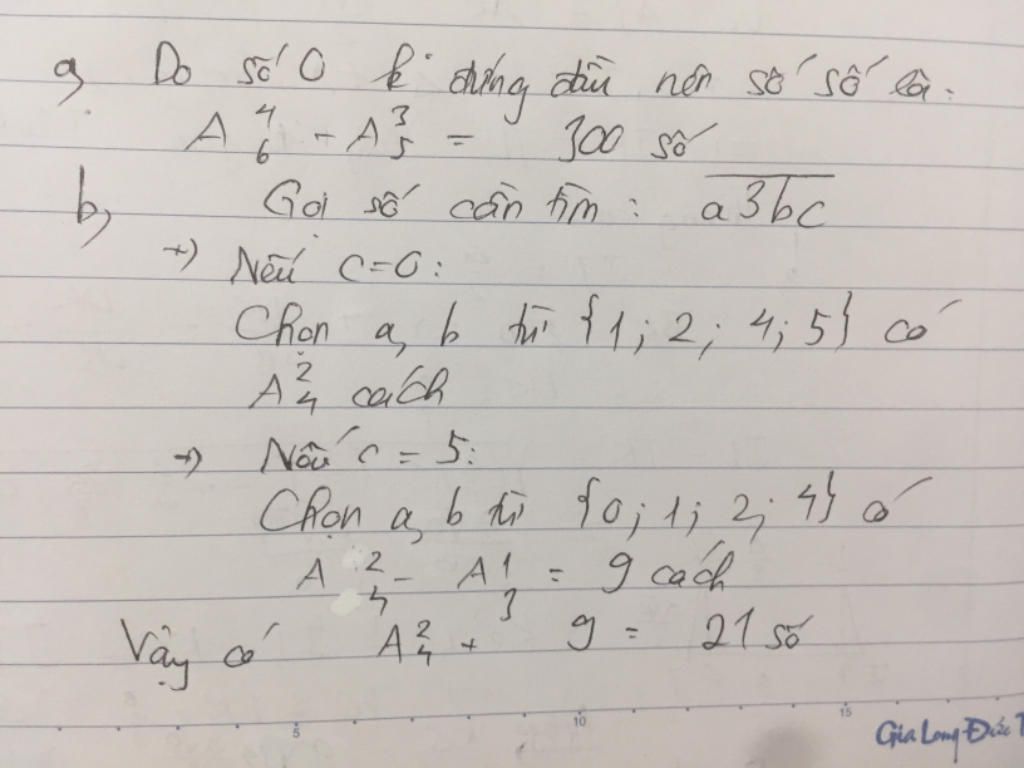 a, Do số 0 k đứng đầu nên số số là:
A⁴₆ - A³₅ = 300 số
b, Gọi số cần tìm: a3bc
+) Nếu c=0:
Chọn a, b từ {1; 2; 4; 5} có
A²₄ cách
+) Nếu c = 5:
Chọn a, b từ {0; 1; 2; 4} có
A²₄ - A¹₃ = 9 cách
Vậy có A²₄ + 9 = 21 số
5 10 15
Gia Long Đức